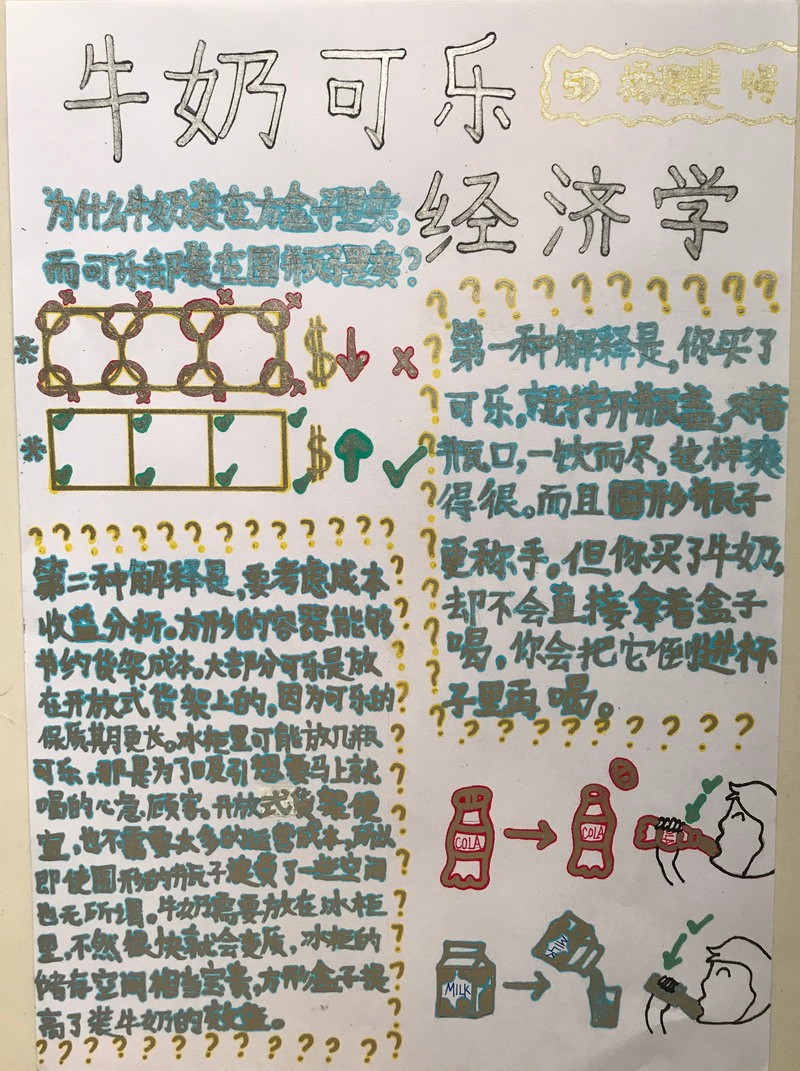 牛奶可乐
经济学
为什么牛奶装在方盒子里卖,
而可乐却装在圆瓶子里卖?
$
$
第一种解释是,你买了
可乐,就拧开瓶盖,对着
瓶口,一饮而尽,这样爽
得很。而且圆形瓶子
更称手。但你买了牛奶,
却不会直接拿着盒子
喝,你会把它倒进杯
子里再喝。
第二种解释是,要考虑成本
收益分析。方形的容器能够
节约货架成本。大部分可乐是放
在开放式货架上的,因为可乐的
保质期更长。冰柜里可能放几瓶
可乐,那是为了吸引想要马上就
喝的心急顾客。开放式货架便
宜,也不需要太多的运营成本,所以
即使圆形的瓶子浪费了一些空间
也无所谓。牛奶需要放在冰柜
里,不然很快就会变质,冰柜的
储存空间相当宝贵,方形盒子提
高了装牛奶的效益。
COLA
COLA
MILK
MILK